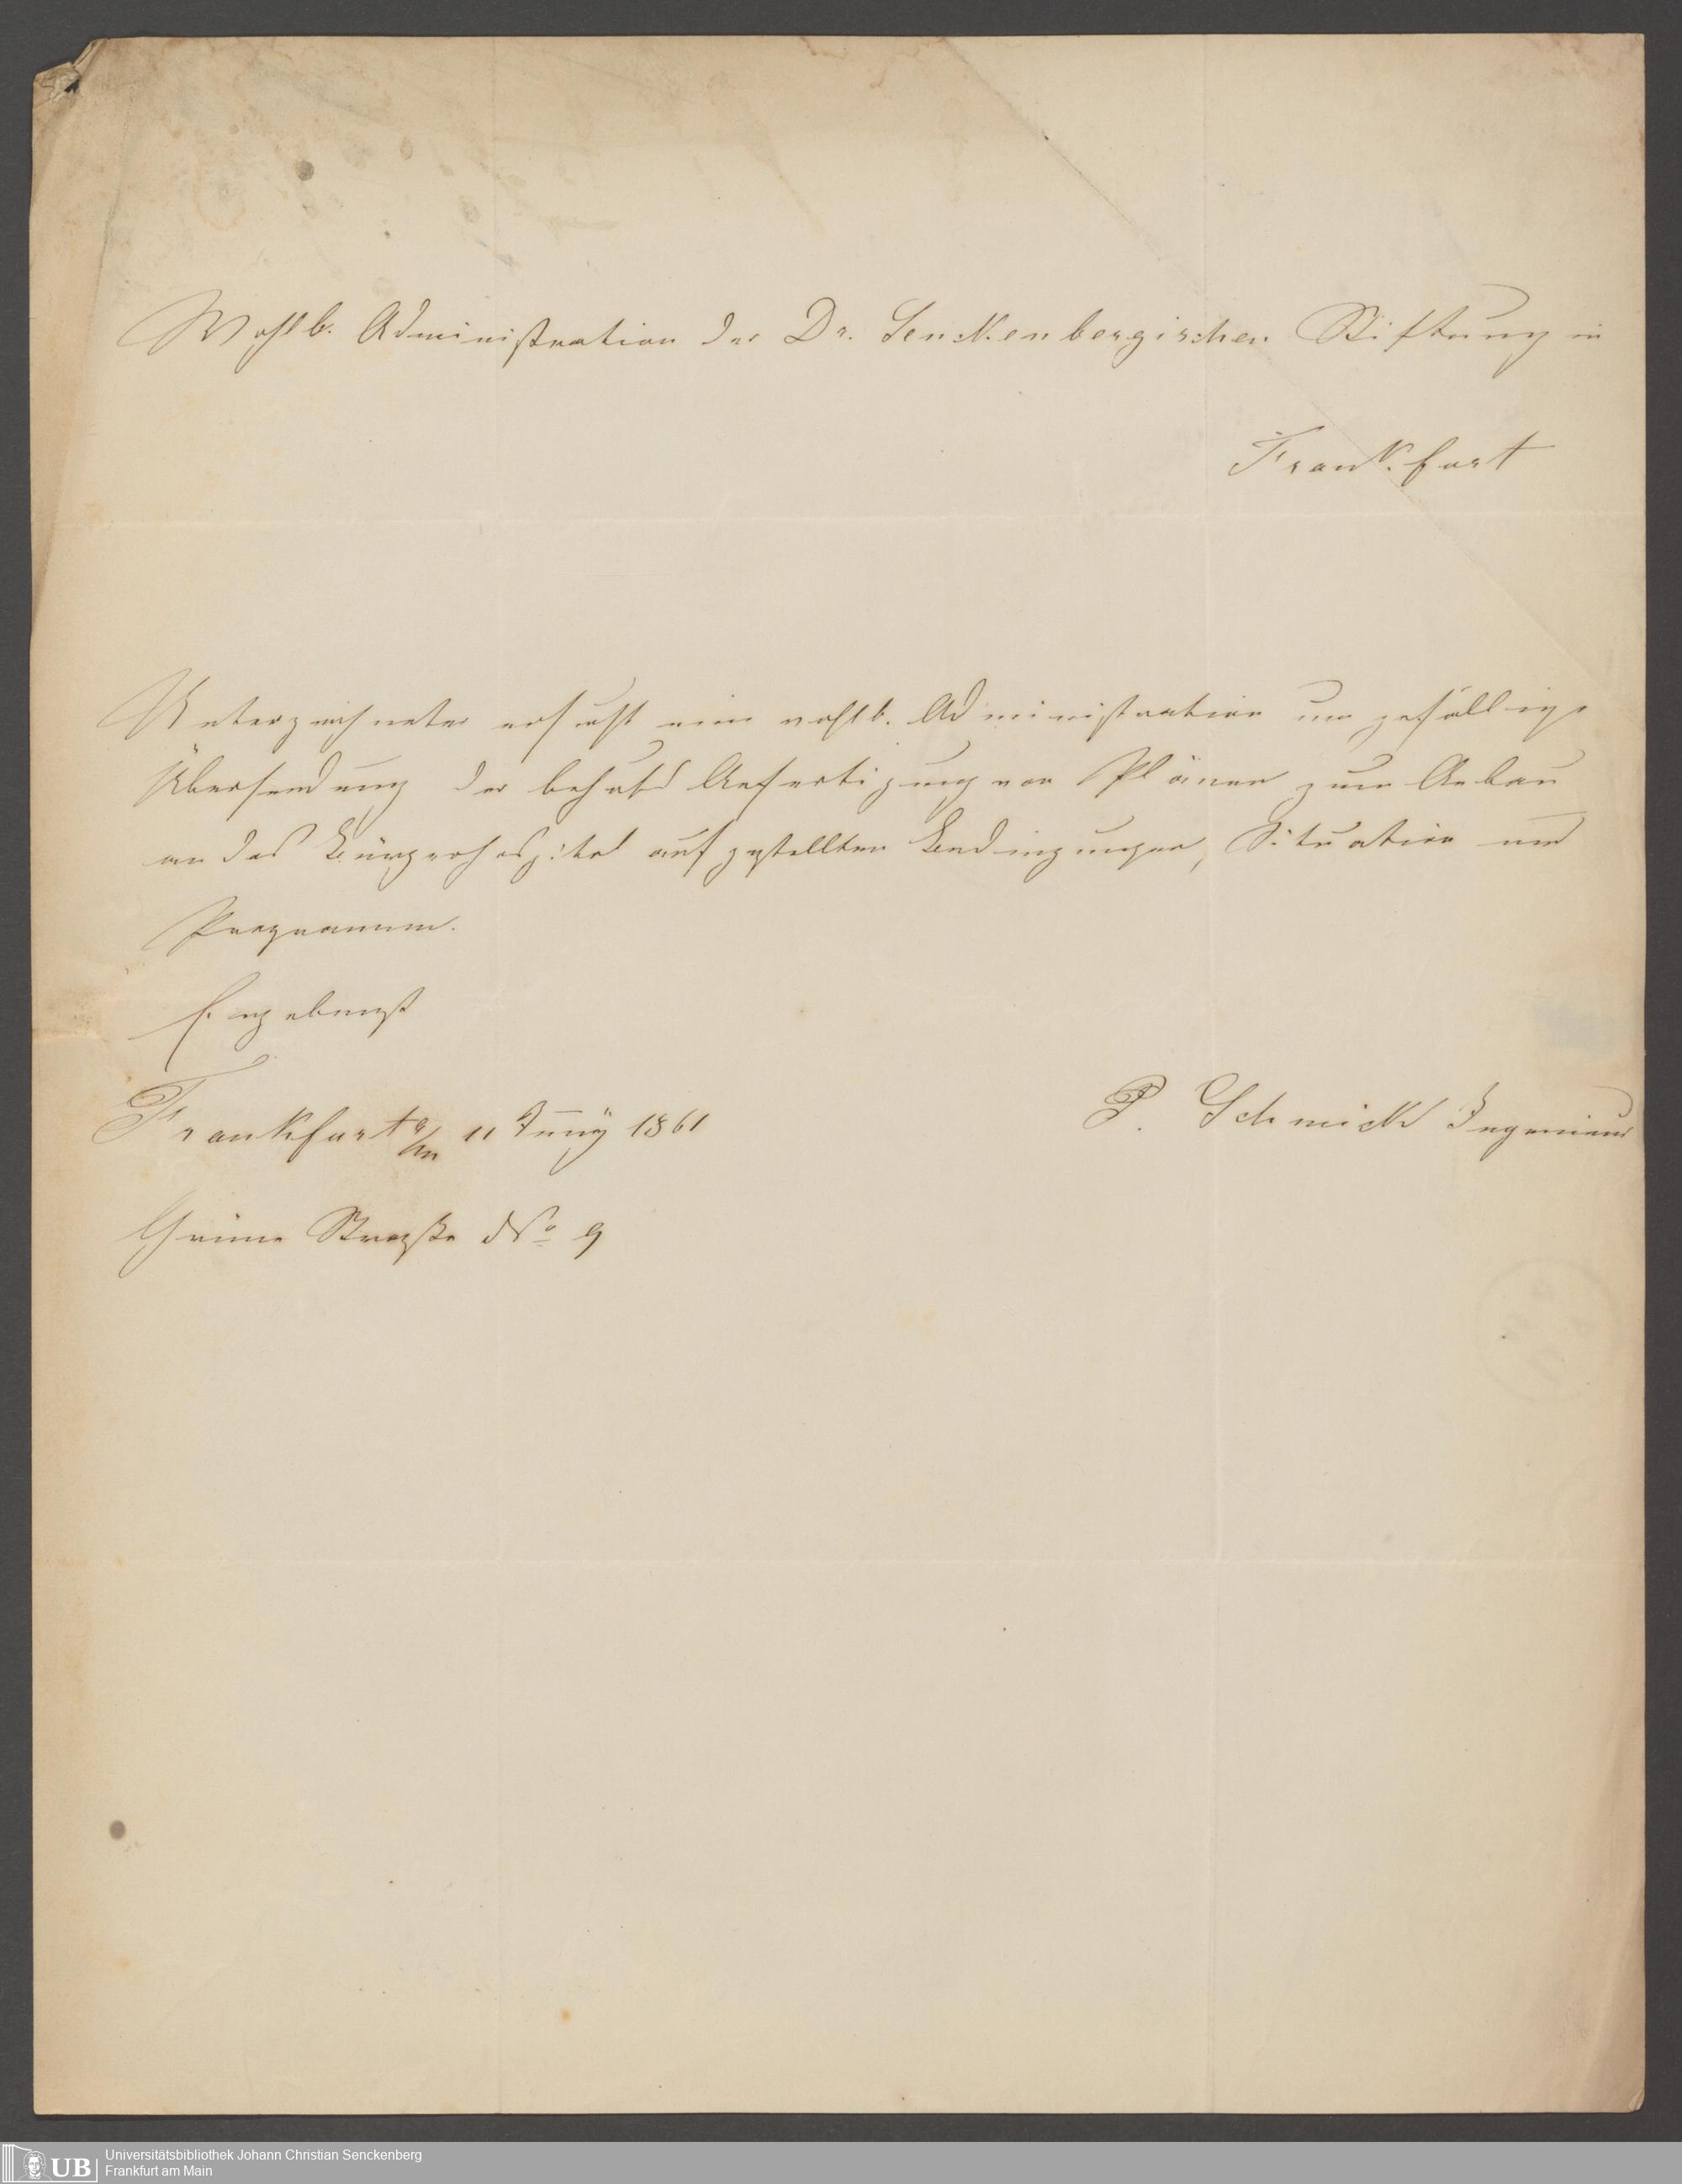 Wohllb. Administration der Dr. Senckenbergischen Stiftung in
Frankfurt
Unterzeichneter ersucht eine wohllb. Administration um gefällige
Übersendung der behufs Anfertigung von Plänen zum Anbau
an das Bürgerhospital aufgestellten Bedingungen, Situation und
Programm.
Ergebenst
Frankfurt a/m 11 Juny 1861
P. Schmick Ingenieur
Grüne Straße No 9
UB
Universitätsbibliothek Johann Christian Senckenberg
Frankfurt am Main